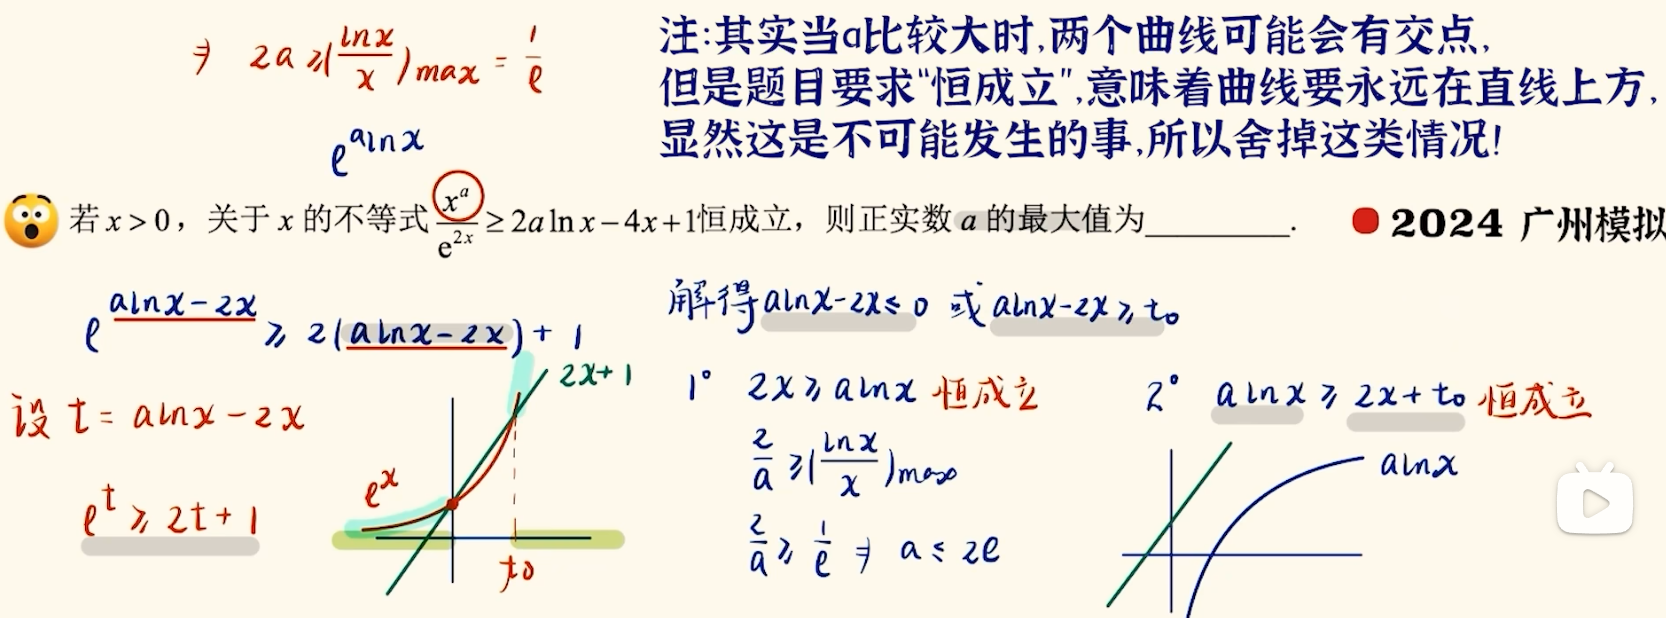 ⇒ 2a ≥ (lnx/x)max = 1/e
注:其实当a比较大时,两个曲线可能会有交点,
但是题目要求“恒成立”,意味着曲线要永远在直线上方,
显然这是不可能发生的事,所以舍掉这类情况!
e^{alnx}
若 x > 0，关于 x 的不等式 x^a/e^{2x} ≥ 2a ln x − 4x + 1恒成立，则正实数 a 的最大值为________.
2024 广州模拟
e^{alnx-2x} ≥ 2(alnx-2x) + 1
设 t = alnx - 2x
e^t ≥ 2t + 1
2x+1
e^x
t₀
解得 alnx-2x ≤ 0 或 alnx-2x ≥ t₀
1° 2x ≥ alnx 恒成立
2/a ≥ (lnx/x)max
2/a ≥ 1/e ⇒ a ≤ 2e
2° alnx ≥ 2x + t₀ 恒成立
alnx